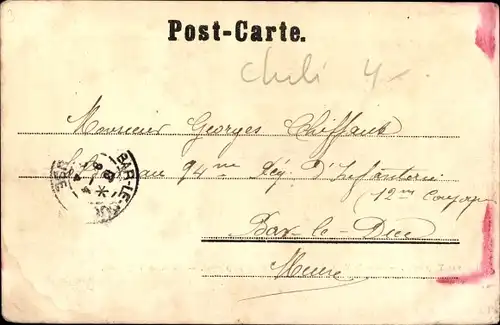 Post-Carte.
Chili 4
Monsieur Georges Chiffaut
au 94me Rég. D'Infanterie
12me Compagnie
Bar-le-Duc
Meuse
BAR-LE-DUC